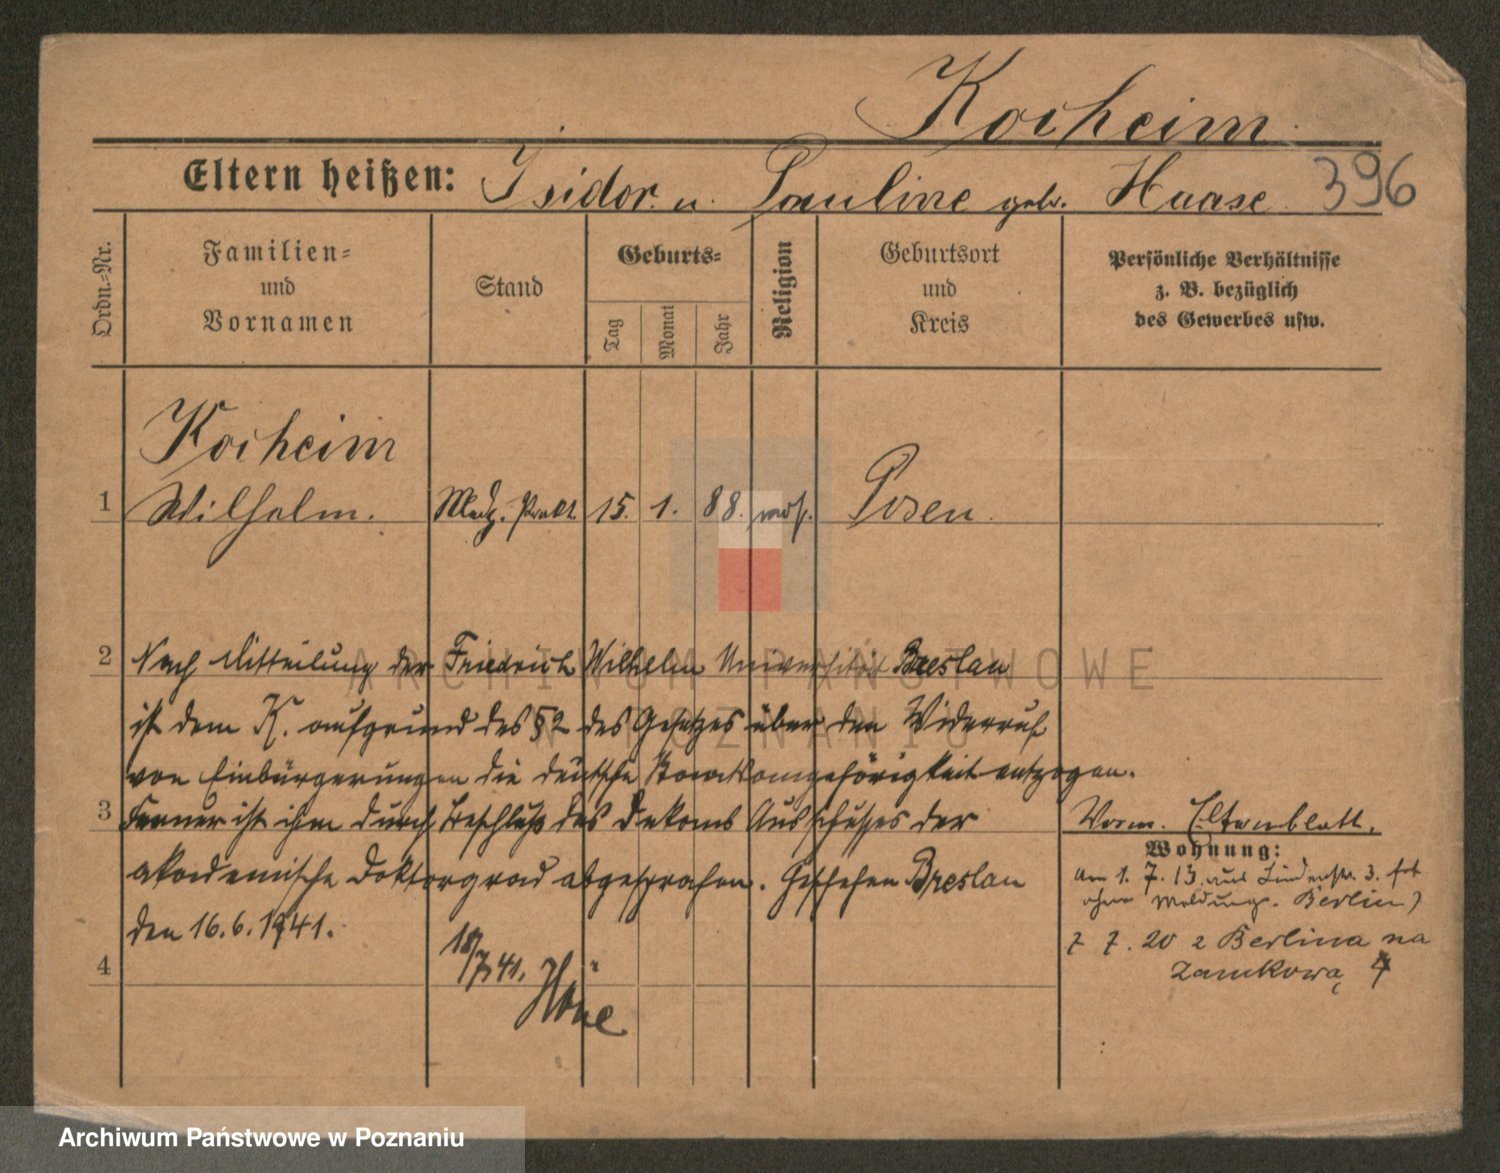 Korheim
Eltern heißen: Isidor u. Pauline geb. Haase. 396
Ordn.-Nr.
Familien-
und
Vornamen
Stand
Geburts-
Tag
Monat
Jahr
Religion
Geburtsort
und
Kreis
Persönliche Verhältnisse
z. B. bezüglich
des Gewerbes usw.
Korheim
1 Wilhelm. Medz. Prakt 15. 1. 88. mos. Posen.
2 Nach Mitteilung der Friedrich Wilhelm Universität Breslau
ist dem K. aufgrund des §2 des Gesetzes über den Widerruf
von Einbürgerungen die deutsche Staatsangehörigkeit entzogen.
3 Ferner ist ihm durch Beschluß des Ausschusses der
akademische Doktorgrad abgesprochen. Geschehen Breslau
den 16.6.1941.
4 18/7.41.
Vorm. Elternblatt.
Wohnung:
am 1. 7. 13. aus Lindenstr. 3. fort
ohne Meldung. Berlin)
7 7. 20 z Berlina na
Zamkową 4
ARCHIWUM PAŃSTWOWE
W POZNANIU
Archiwum Państwowe w Poznaniu